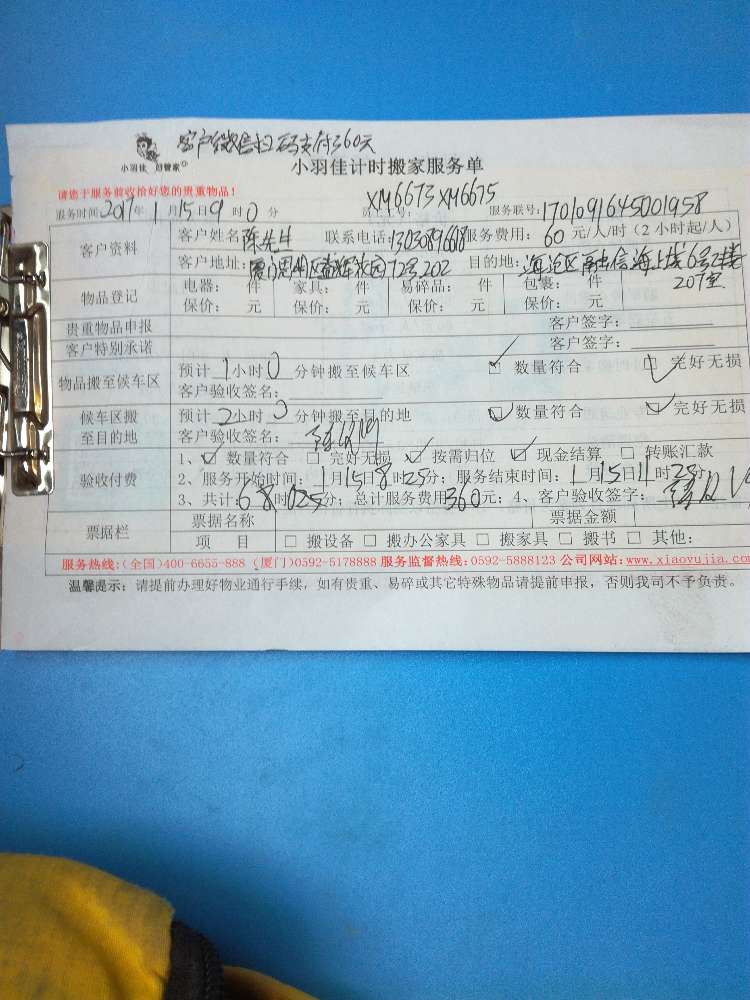 客户微信扫码支付360元
小羽佳 的管家
小羽佳计时搬家服务单
请您于服务前收拾好您的贵重物品!
XM6673 XM6675
服务时间2017年1月15日9时0分 员工工号: 服务联号:1701091645001958
客户资料 客户姓名:陈先生 联系电话:13030896618 服务费用: 60 元/人/时(2小时起/人)
客户地址: 12号202 目的地: 海沧区 海上 6号2楼
207室
物品登记 电器: 件 家具: 件 易碎品: 件 包裹: 件
保价: 元 保价: 元 保价: 元 保价: 元
贵重物品申报 客户签字:
客户特别承诺 客户签字:
物品搬至候车区 预计1小时0分钟搬至候车区 ☑ 数量符合 ☑ 完好无损
客户验收签名:
候车区搬至目的地 预计2小时0分钟搬至目的地 ☑ 数量符合 ☑ 完好无损
客户验收签名:
验收付费 1、☑ 数量符合 □ 完好无损 ☑ 按需归位 ☑ 现金结算 □ 转账汇款
2、服务开始时间:1月15日8时25分; 服务结束时间:1月15日11时25分;
3、共计: 时 分; 总计服务费用360元; 4、客户验收签字:
票据栏 票据名称 票据金额
项 目 □ 搬设备 □ 搬办公家具 □ 搬家具 □ 搬书 □ 其他:
服务热线:(全国)400-6655-888 (厦门)0592-5178888 服务监督热线:0592-5888123 公司网站:www.xiaoyujia.com
温馨提示: 请提前办理好物业通行手续,如有贵重、易碎或其它特殊物品请提前申报,否则我司不予负责。